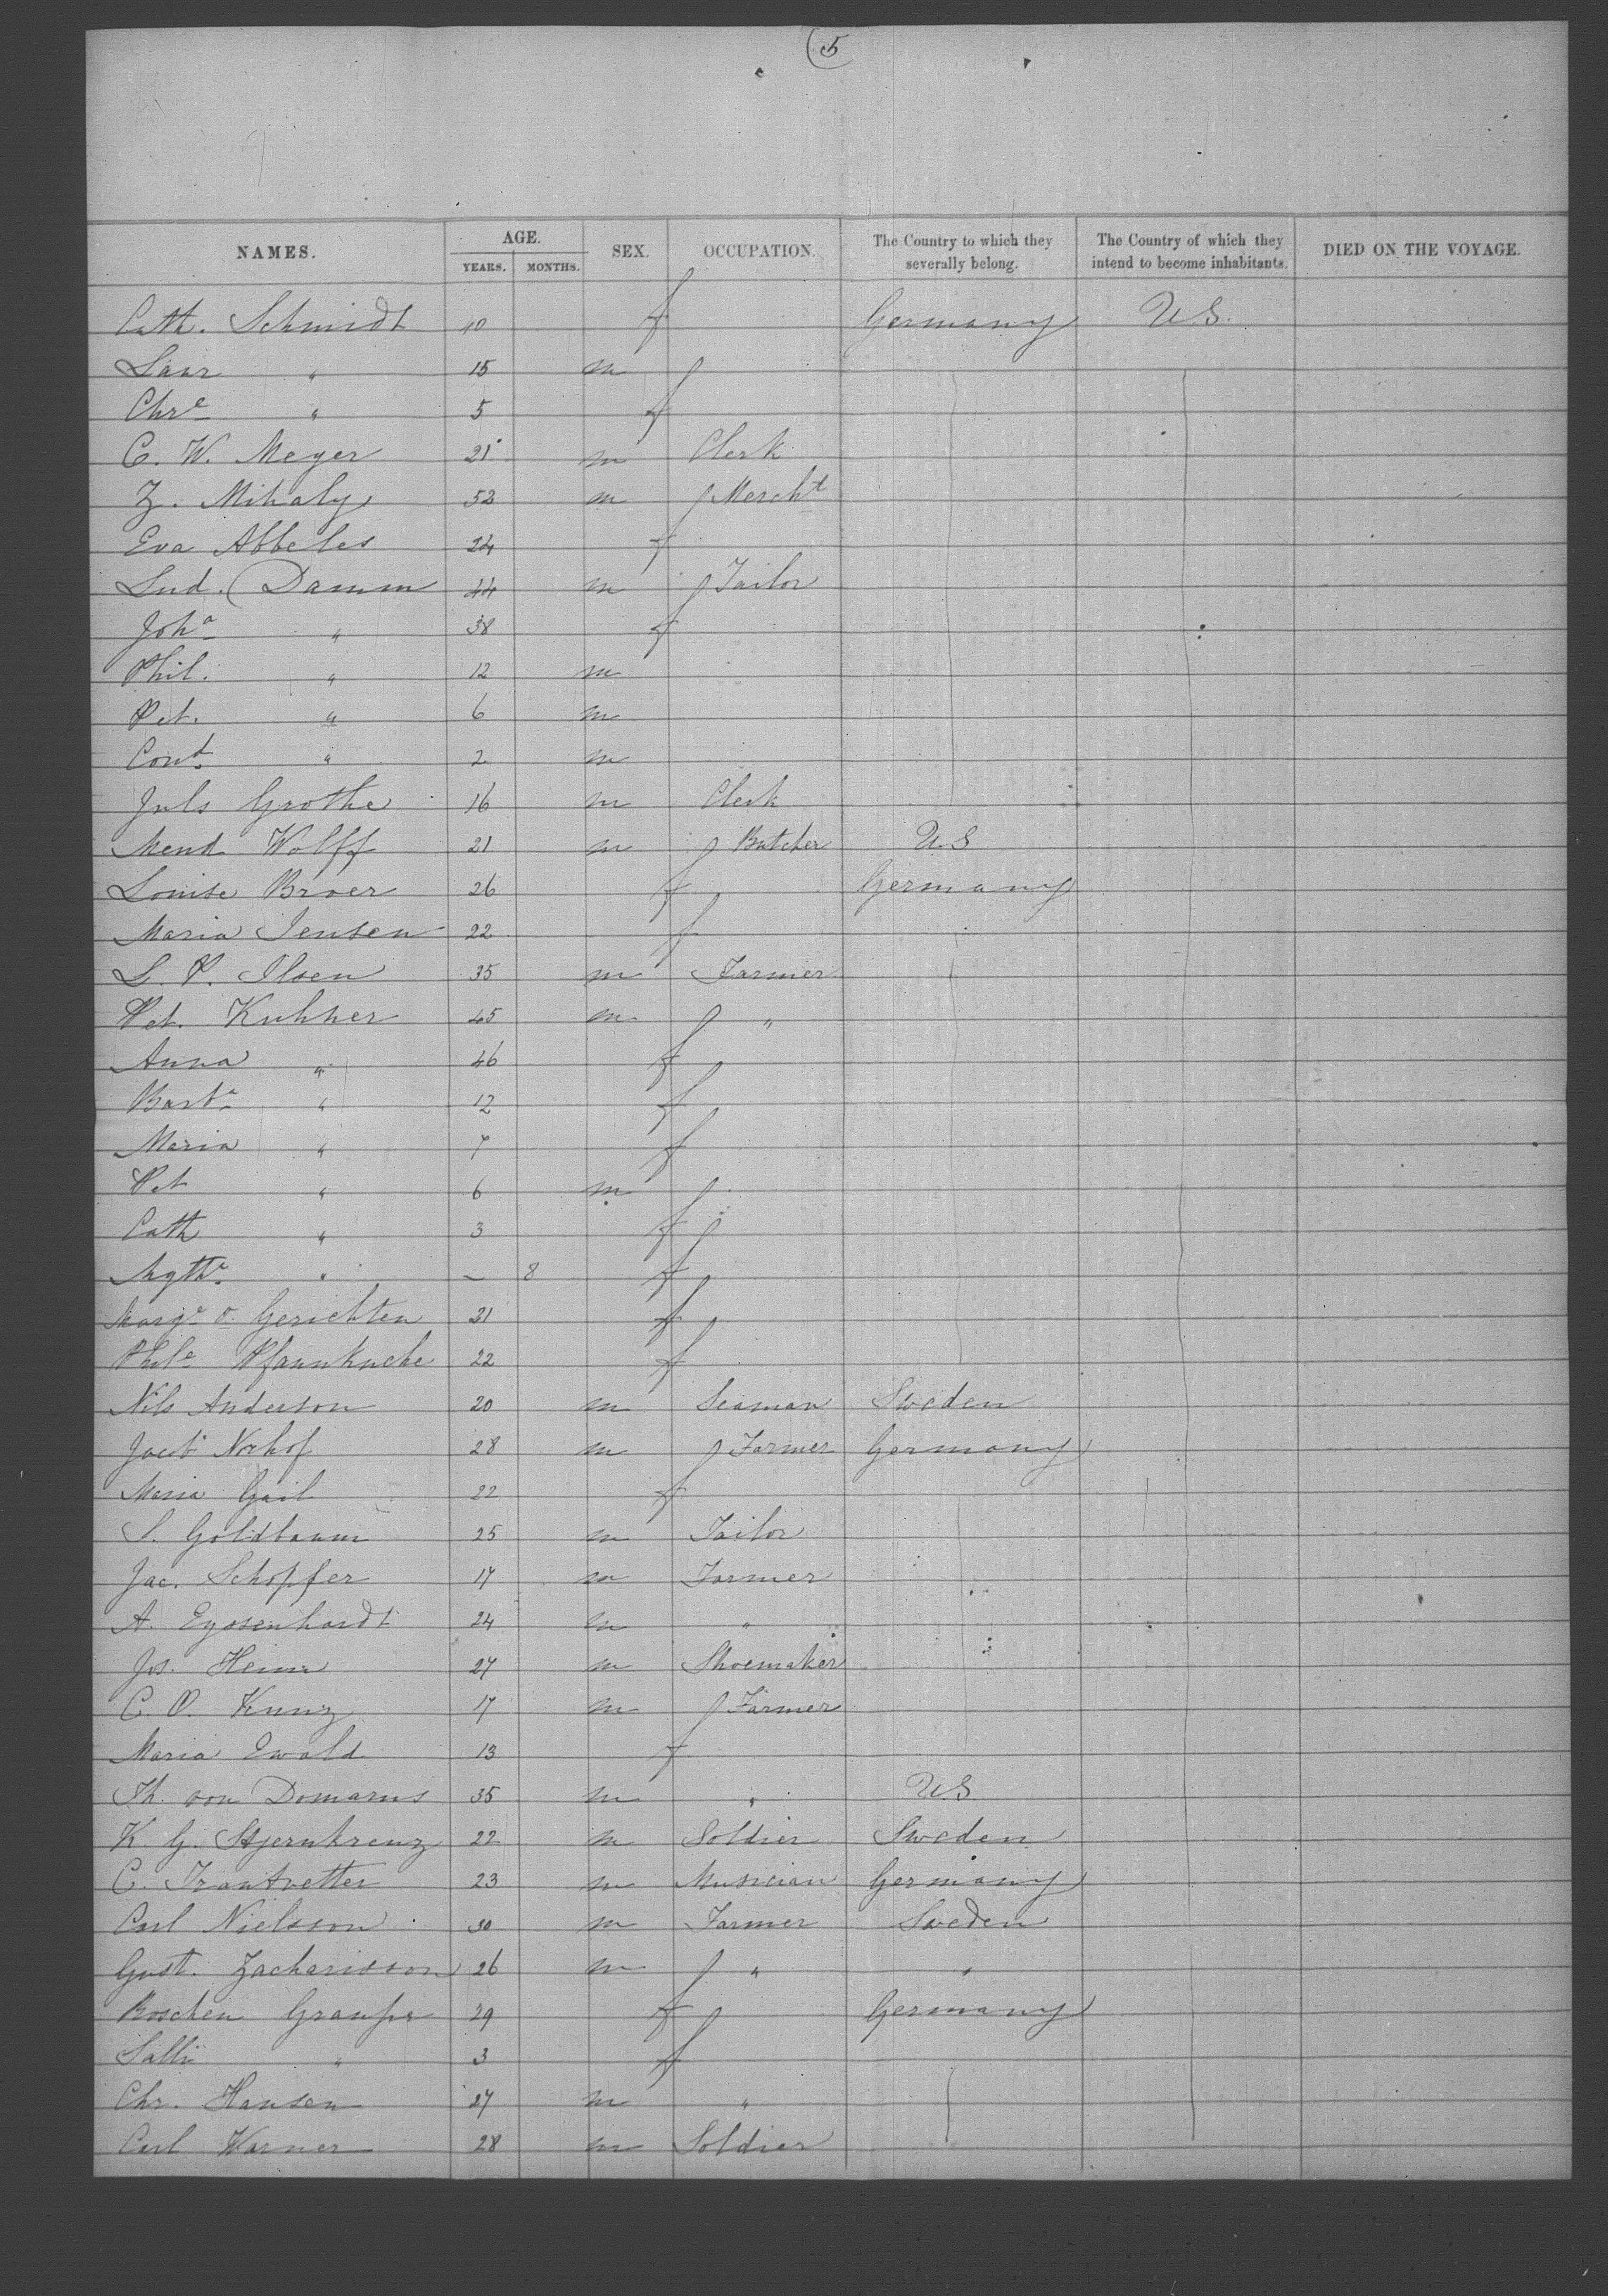 5
NAMES. AGE. SEX. OCCUPATION. The Country to which they severally belong. The Country of which they intend to become inhabitants. DIED ON THE VOYAGE.
YEARS. MONTHS.
Cath. Schmidt 40 f Germany U.S.
" 15 m
Chre " 5 f
C. W. Meyer 21 m Clerk
Z. Mihaly 52 m Mercht
Eva Abbeles 24 f
Lud. Damm 44 m Tailor
Joha " 38 f
Phil. " 12 m
Pet. " 6 m
Cond " 2 m
Juls Grothe 16 m Clerk
Mend Wolff 21 m Butcher U.S
Louise Broer 26 f Germany
Maria Jensen 22 f
L. P. Olsen 35 m Farmer
Pet. Kuhner 45 m "
Anna " 46 f
Barba " 12 f
Maria " 7 f
Pet " 6 m
Cath " 3 f
" – 8 f
Marge v. Gerichten 21 f
Phile Pfannkuche 22 f
Nils Anderson 20 m Seaman Sweden
Jacb 28 m Farmer Germany
Maria Gail 22 f
S. Goldbaum 25 m Tailor
Jac. Schopfer 17 m Farmer
A. Eyssenhardt 24 m "
Jos. Heim 27 m Shoemaker
C. P. Kunz 17 m Farmer
Maria Ewald 13 f
Th. von Domarus 35 m " U.S
K. G. Stjernkreuz 22 m Soldier Sweden
C. Trautvetter 23 m Musician Germany
Carl Nielsson 30 m Farmer Sweden
Gust. Zacharisson 26 m " "
Roschen Graupe 29 f Germany
Salli " 3 f
Chr. Hansen 27 m "
Carl Warner 28 m Soldier